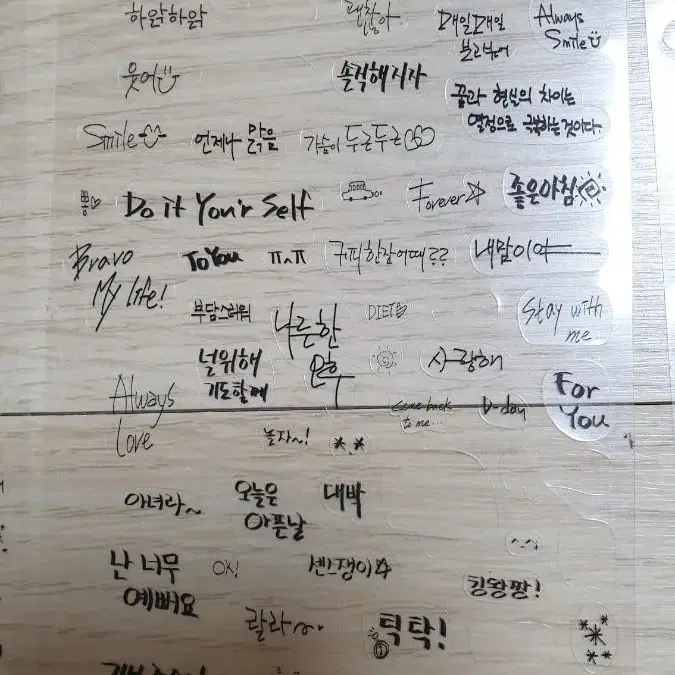 하악하악
괜찮아
매일매일
보고싶어
Always
Smile
웃어
솔직해지자
꿈과 현실의 차이는
열정으로 극복하는것이다.
Smile
언제나 맑음
가슴이 두근두근
Do it Your Self
Forever
좋은아침
Bravo
My life!
To You
ㅠㅅㅠ
커피한잔어때??
내맘이야
부담스러워
나른한
오후
DIET
Stay with
me...
널위해
기도할께
사랑해
Always
Love
Come back
to me...
D-day
For
You
놀자~!
*.*
아녀라~
오늘은
아픈날
대박
^.^
난 너무
예뻐요
OK!
센스쟁이
킹왕짱!
랄라~
틱탁!